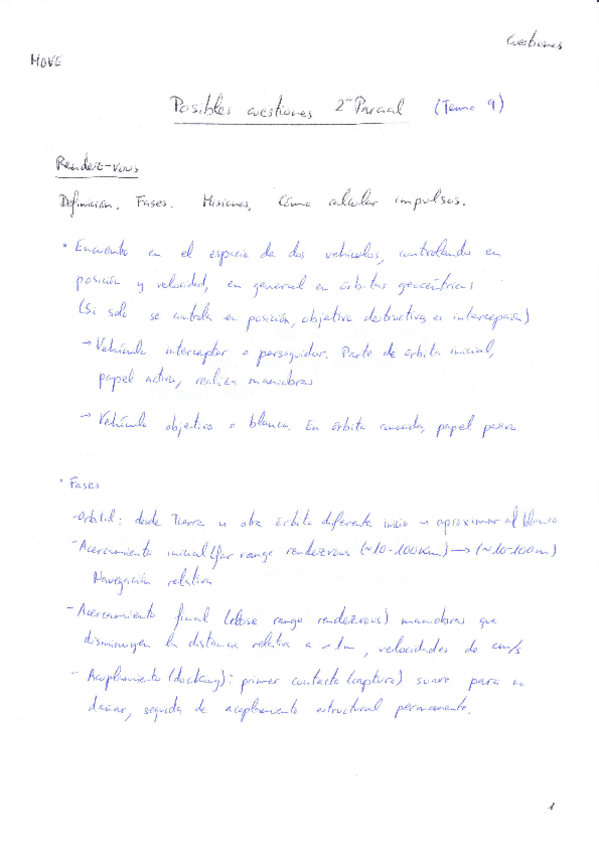 Cuestiones
MOVE
Posibles cuestiones 2º Parcial (Tema 9)
Rendez-vous
Definición. Fases. Misiones. Cómo calcular impulsos.
• Encuentro en el espacio de dos vehículos, controlando en
posición y velocidad, en general en órbitas geocéntricas
(Si solo se controla en posición, objetivo destructivo es intercepción)
→ Vehículo interceptor o perseguidor. Parte de órbita inicial,
papel activo, realiza maniobras
→ Vehículo objetivo o blanco. En órbita conocida, papel pasivo
• Fases
- Orbital: desde Tierra u otra órbita diferente aproximar al blanco
- Acercamiento inicial (far range rendezvous (~10-100Km) → (~10-100m)
Navegación relativa
- Acercamiento final (close range rendezvous) maniobras que
disminuyen la distancia relativa a ~1m, velocidades de cm/s
- Acoplamiento (docking): primer contacto (captura) suave para no
dañar, seguida de acoplamiento estructural permanente.
1